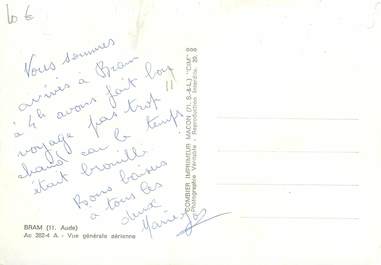 10 €
Nous sommes
arrivés à Bram
à 4h avons fait bon
voyage pas trop
chaud car le temps
était brouillé
Bons baisers
à tous les
deux
Marie-Jo
BRAM (11. Aude)
Ac 262-4 A - Vue générale aérienne
COMBIER IMPRIMEUR MACON (71. S.-&-L.) "CIM"
Photographie Véritable - Reproduction Interdite.